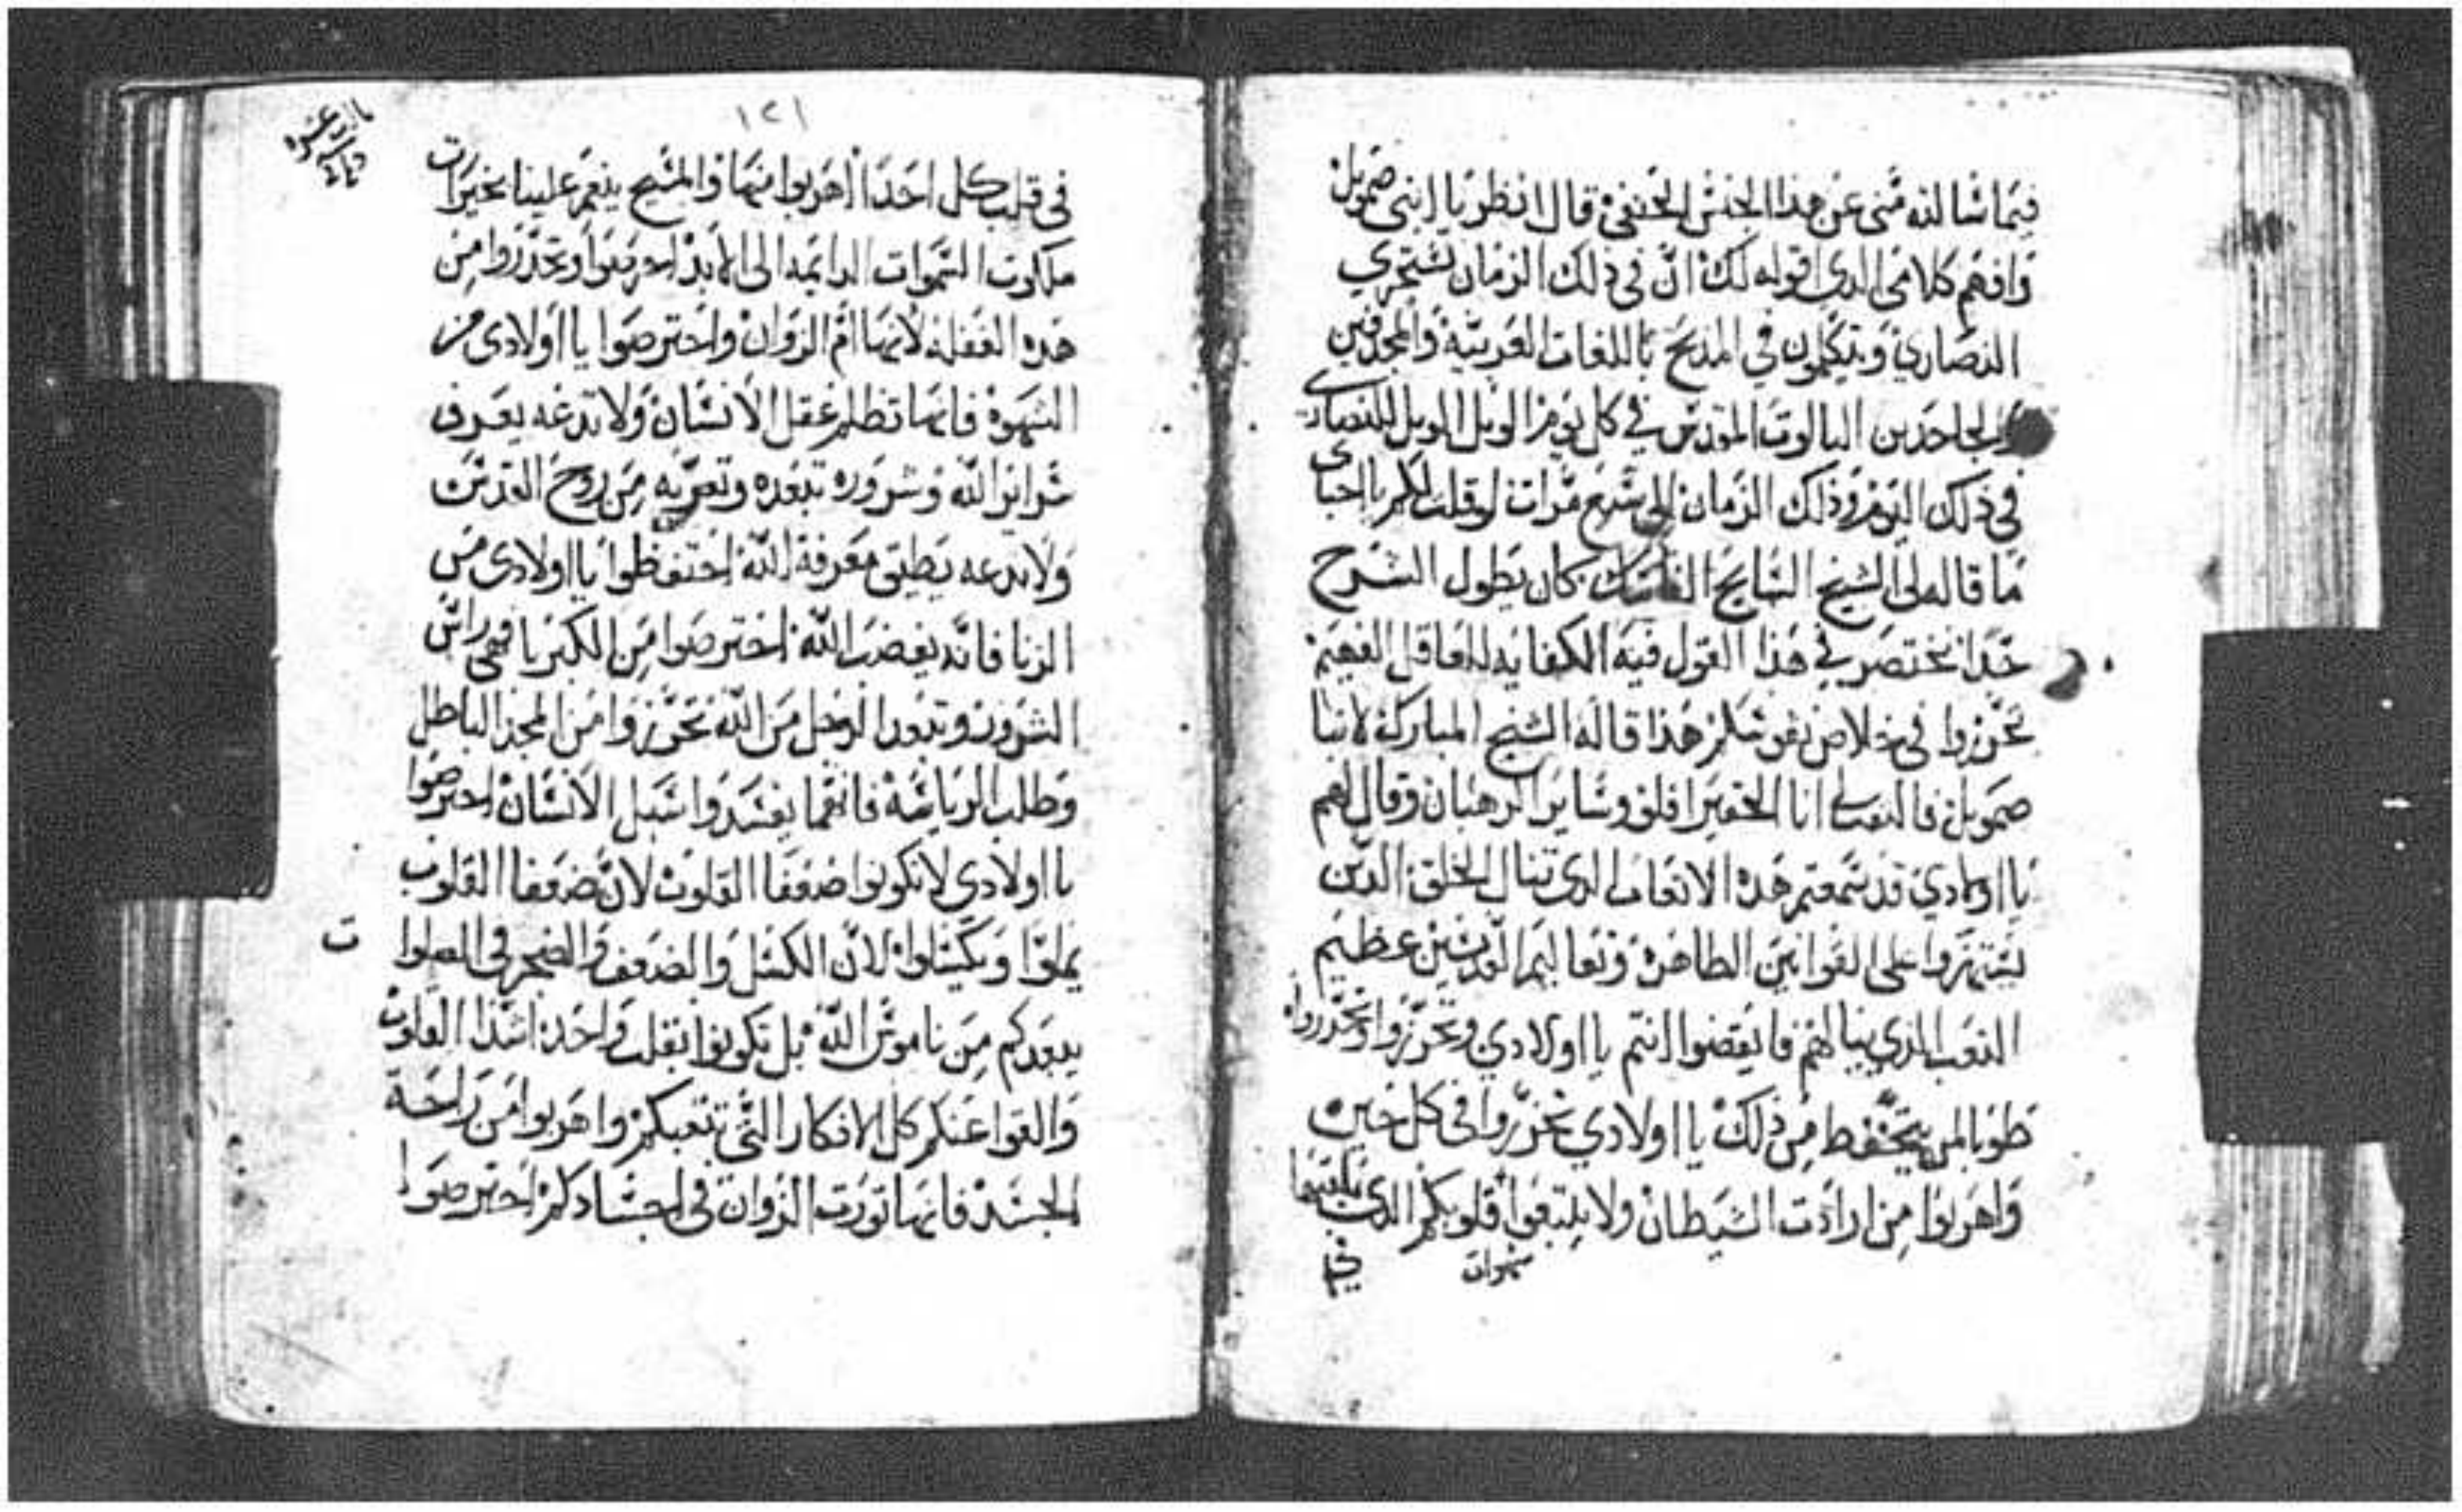 فيما شا لله منى عن هذا الجنس الحنفى قال انظر يا ابنى صمويل
وافهم كلامى الدي اقوله لك ان في ذلك الزمان تستجري
النصاري ويتكلمون في المديح باللغات العربية والمجدفين
والجاحدين التالوت المقدس في كل يوم الويل الويل للنصارى
في ذلك اليوم وذلك الزمان الى سبع مرات لو قلت لكم يا احباى
ما قاله لى الشيخ السايح كان يطول الشرح
جدا نختصر في هذا القول فيه الكفايه للعاقل الفهيم
تحرزوا في خلاص نفوسكم هذا قاله الشيخ المبارك لانبا
صمويل فالتفت لى انا الحقير افلو وساير الرهبان وقال لهم
يا اولادي قد سمعتم هذه الاتعاب الدى تنال الخلق الدين
يستمروا على القوانين الطاهرة وتعاليم القديسين عظيم
التعب الذي ينالهم فايقضوا انتم يا اولادي وتحرزوا وتحدروا
طوبا لمن يتحفط من ذلك يا اولادي تحرزوا في كل حين
واهربوا من ارادت الشيطان ولا يلتبعوا قلوبكم الدى
شهوات
في
١٢١
في قلب كل احدا اهربوا منها والمسيح ينعم علينا بخيرات
ملكوت السموات الدايمه الى الابد احرصوا وتحدروا من
هده الغفلة لانها ام الزوان واحترصوا يا اولادى من
الشهوة فانها تظلم عقل الانسان ولا تدعه يعرف
سراير الله وشروره تبعده وتعريه من روح القدس
ولا تدعه يطيق معرفة الله احتفظوا يا اولادى من
الزنا فانه يغضب الله احترصوا من الكبريا فهى راس
الشرور وتبعد الرجل من الله تحرزوا من المجد الباطل
وطلب الرياسة فانهما يفسدوا سبل الانسان احترصوا
يا اولادي لا تكونوا ضعفا القلوب لان ضعفا القلوب
يملوا ويكسلوا لان الكسل والضعف والضجر في الصلوا
ت
يبعدكم من ناموس الله بل تكونوا بقلب واحد اشدا القلوب
والقوا عنكم كل الافكار التى تتعبكم واهربوا من راحة
الجسد فانها تورت الزوان في اجسادكم احترصوا